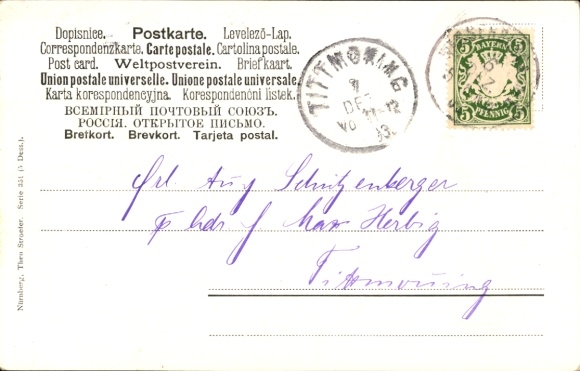 Dopisnice. Postkarte. Levelező-Lap.
Correspondenzkarte. Carte postale. Cartolina postale.
Post card. Weltpostverein. Briefkaart.
Union postale universelle. Unione postale universale.
Karta korespondencyjna. Korespondenční listek.
ВСЕМІРНЫЙ ПОЧТОВЫЙ СОЮЗЪ.
РОССІЯ. ОТКРЫТОЕ ПИСЬМО.
Bretkort. Brevkort. Tarjeta postal.
TITTMONING
7
DEZ
11-12
03.
5 BAYERN 5
5 PFENNIG 5
Frl. Aug Schützenberger
Max Herbig
Tittmoning
Nürnberg, Theo Stroefer. Serie 351 (5 Dess.).